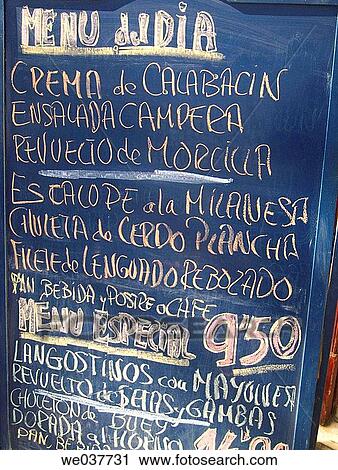 MENU del DIA
CREMA de CALABACIN
ENSALADA CAMPERA
REVUELTO de MORCILLA
ESCALOPE a la MILANESA
CHULETA de CERDO PLANCHA
FILETE de LENGUADO REBOZADO
PAN BEBIDA y POSTRE o CAFE
MENU ESPECIAL 9'50
LANGOSTINOS con MAYONESA
REVUELTO de SETAS y GAMBAS
CHULETON de BUEY
DORADA al HORNO
PAN BE
we037731 www.fotosearch.com